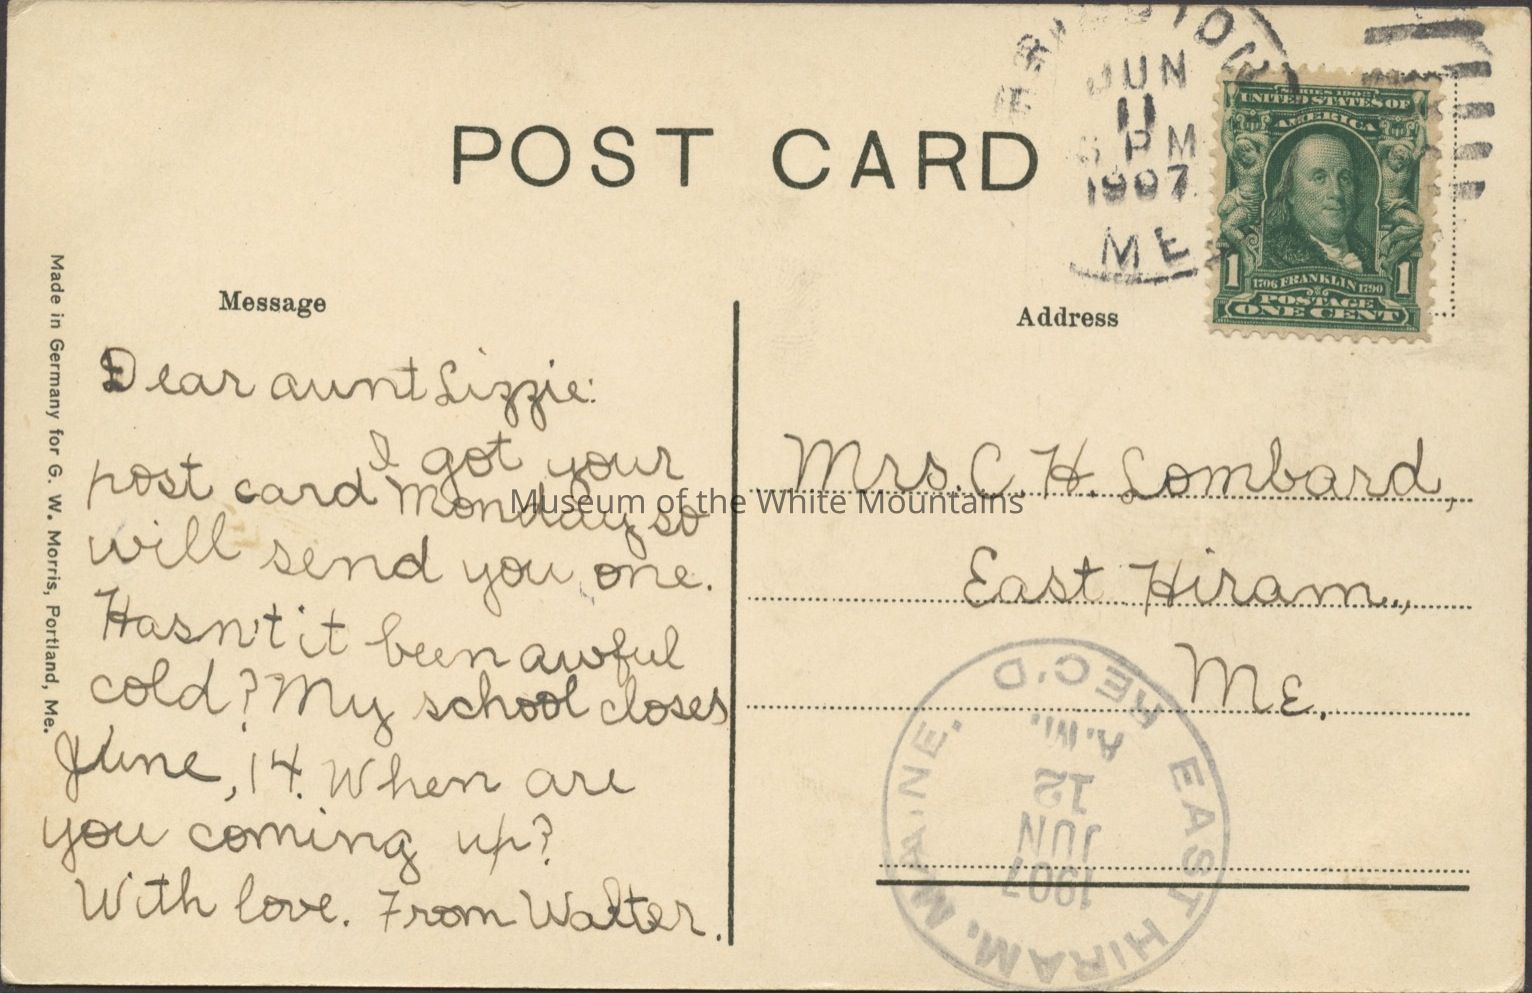 POST CARD
JUN
11
PM
1907
ME
SERIES 1902
UNITED STATES OF
AMERICA
1706 FRANKLIN 1790
1 1
POSTAGE
ONE CENT
Made in Germany for G. W. Morris, Portland, Me.
Message
Dear aunt Lizzie:
I got your
post card Monday so
will send you one.
Hasn't it been awful
cold? My school closes
June, 14. When are
you coming up?
With love. From Walter.
Address
Mrs. C. H. Lombard,
East Hiram.,
Me.
EAST HIRAM. MAINE. REC'D
A.M.
12
JUN
1907
Museum of the White Mountains